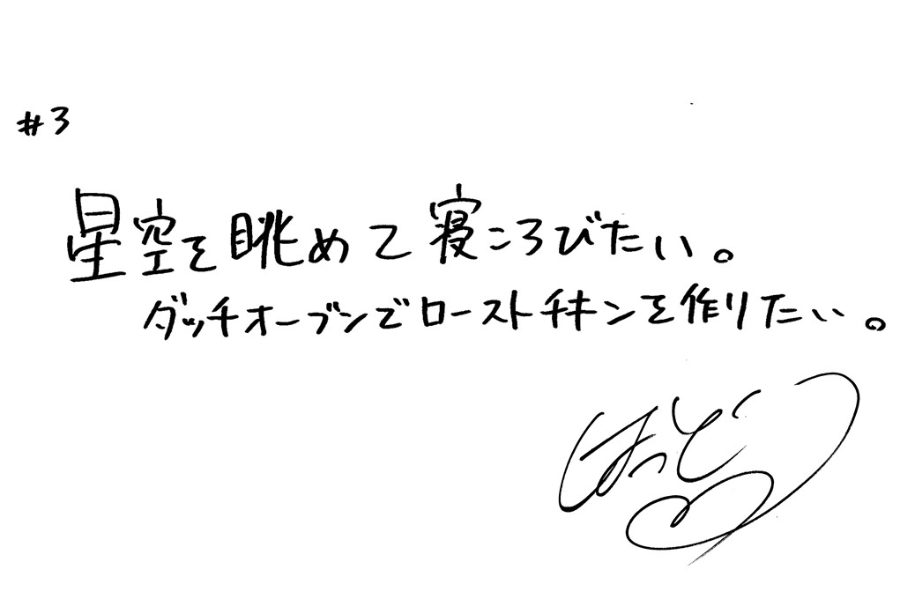 #3
星空を眺めて寝ころびたい。
ダッチオーブンでローストチキンを作りたい。
はっとり